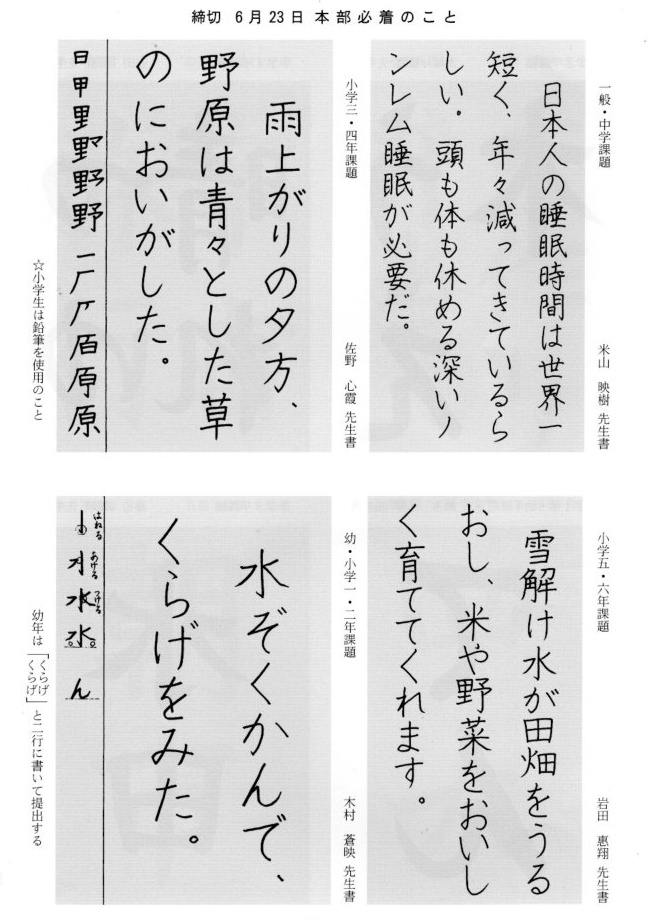 締切 6月23日本部必着のこと
一般・中学課題
米山 映樹 先生書
日本人の睡眠時間は世界一
短く、年々減ってきているら
しい。頭も体も休める深いノ
ンレム睡眠が必要だ。
小学三・四年課題
佐野 心霞 先生書
雨上がりの夕方、
野原は青々とした草
のにおいがした。
日甲里野野野 一厂𠂆百原原
☆小学生は鉛筆を使用のこと
小学五・六年課題
岩田 惠翔 先生書
雪解け水が田畑をうる
おし、米や野菜をおいし
く育ててくれます。
幼・小学一・二年課題
木村 蒼映 先生書
水ぞくかんで、
くらげをみた。
はねる あげる つける
亅 水水 ん
幼年は「くらげ
くらげ」と二行に書いて提出する